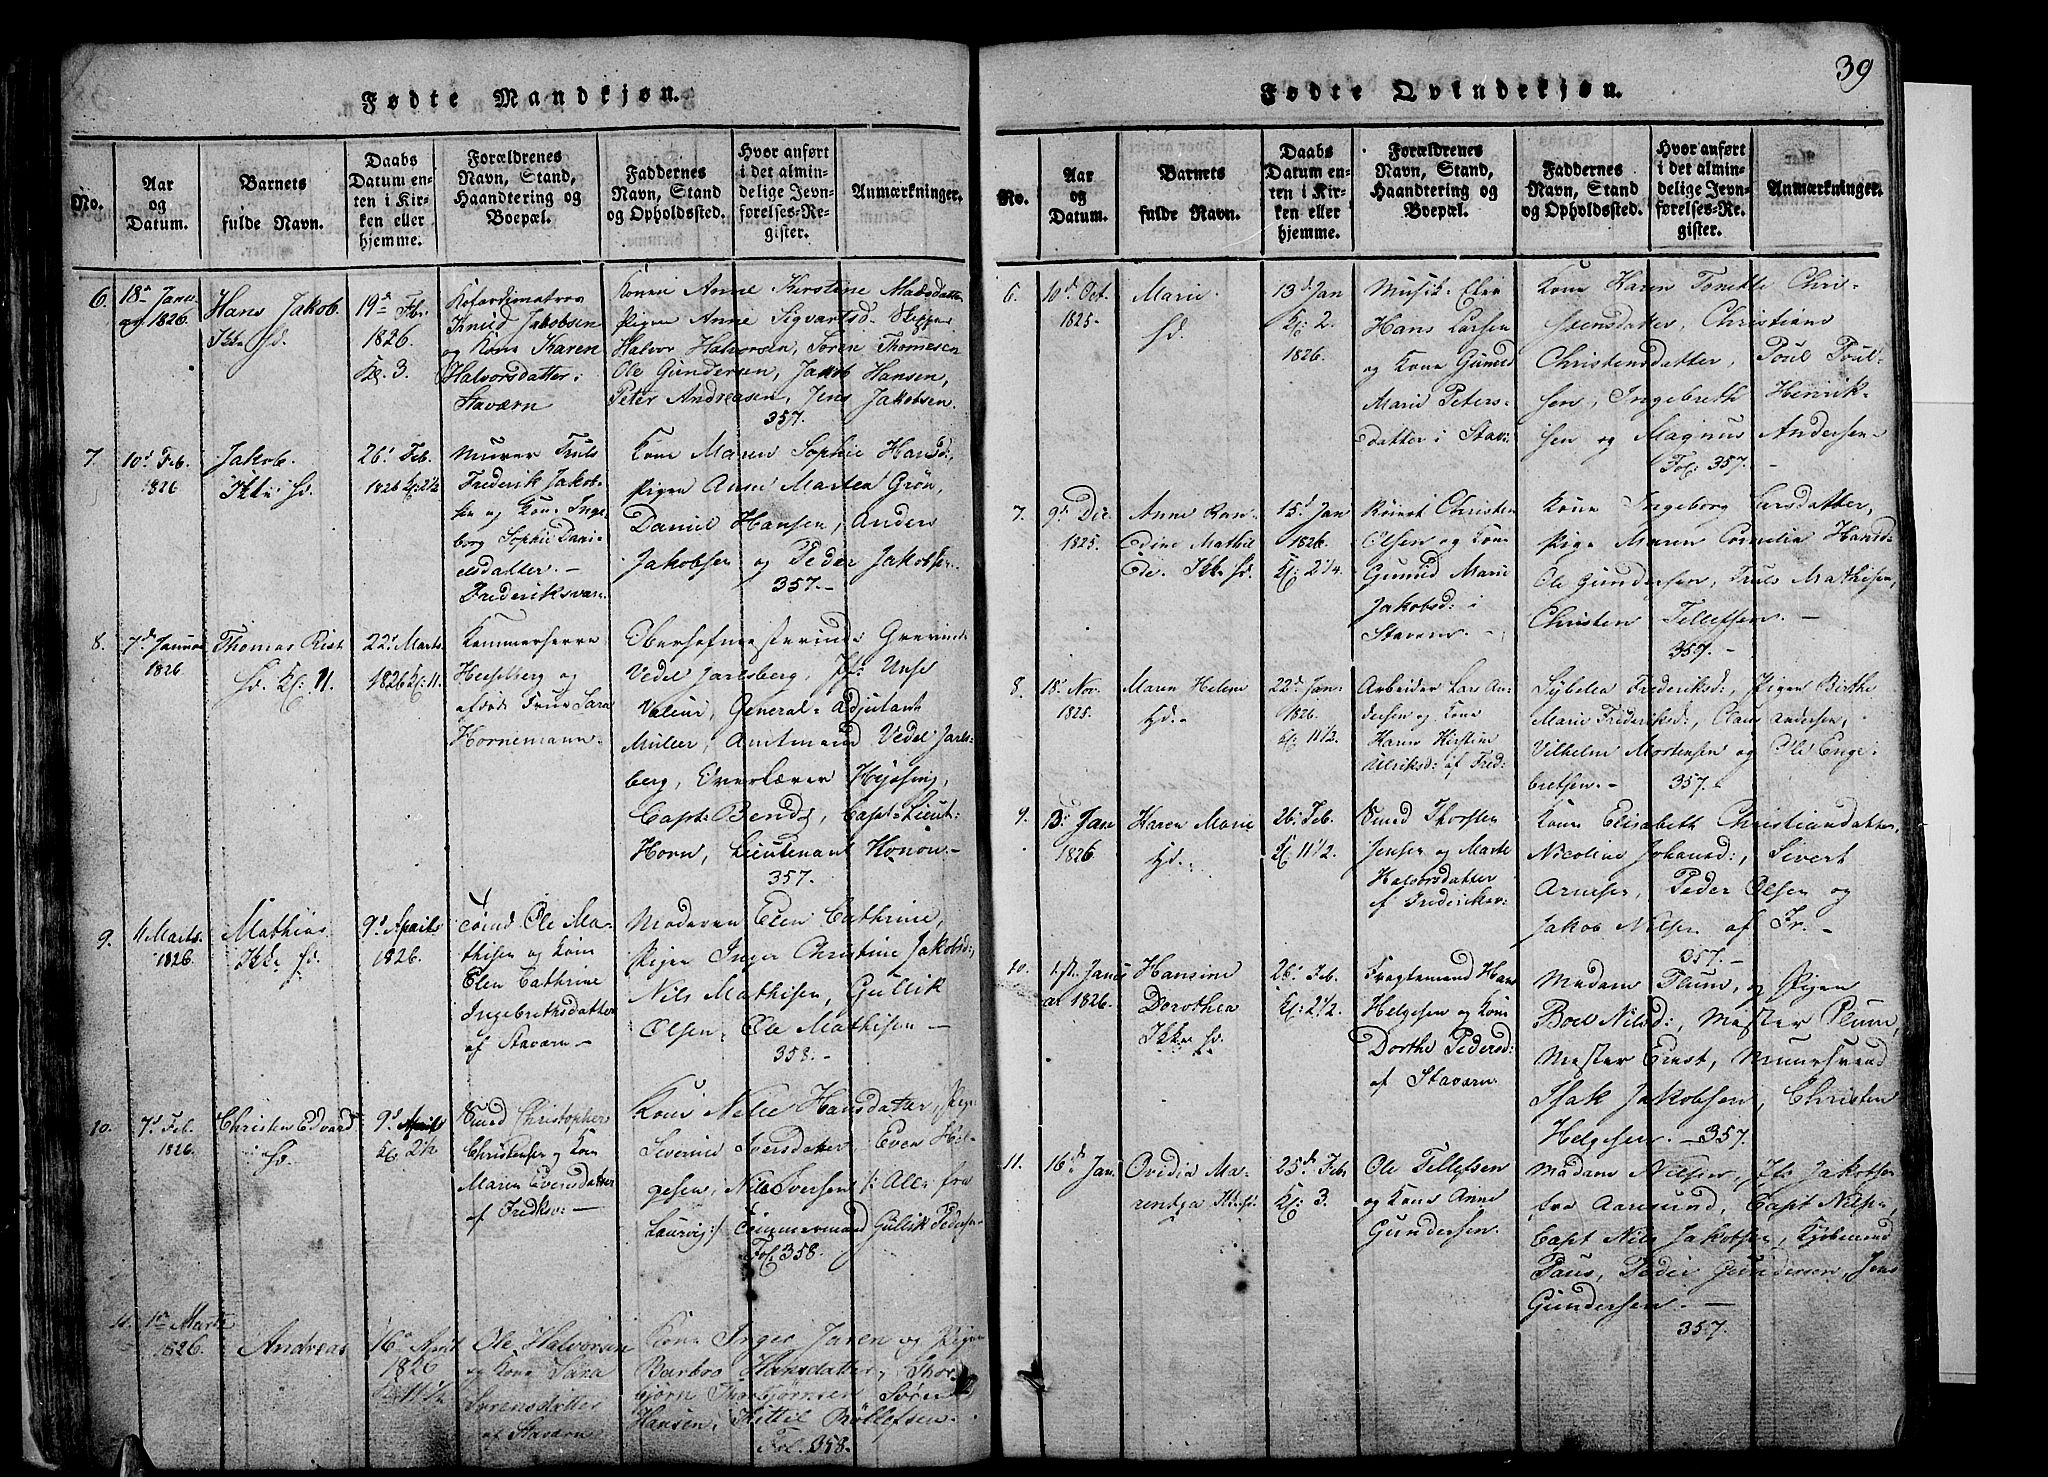 39
Fødte Mandkjøn.
No.
Aar
og
Datum.
Barnets
fulde Navn.
Daabs
Datum en-
ten i Kir-
ken eller
hjemme.
Forældrenes
Navn, Stand,
Haandtering og
Boepæl.
Faddernes
Navn, Stand
og Opholdssted.
Hvor anført
i det almin-
delige Jevn-
førelses-Re-
gister.
Anmærkninger.
6.
18de Janu-
ar 1826.
Hans Jakob.
Ikke hd.
19de Febr.
1826.
Kl. 3.
Kofardimatros
Knud Jakobsen
og Kone Karen
Halvorsdatter i
Staværn
Konen Anne Kirstine Madsdatter
Pigen Anne Sigvartsd.
Halvor Halvorsen, Søren Thomesen
Ole Gundersen, Jakob Hansen,
Peter Andreasen, Jens Jakobsen.
357.
7.
10d Feb.
1826
Jakob.
Ikke hd.
26d Feb.
1826 Kl: 2½
Murer Truls
Frederik Jakob-
sen og Kone Inge-
borg Sophie Dani-
elsdatter. —
Frederiksværn
Kone Maren Sophie Hansd:,
Pigen Anne Marten Grön,
Daniel Hansen, Anders
Jakobsen og Peder Jakobsen.
357. —
8.
7de Januar
1826
Thomas Rist
hd. Kl: 11.
22d Marts
1826 Kl: 11.
Kammerherre
Hesselberg og
afdøde Frue Sara
Hornemann.
Oberhofmesterinde Grevinde
Vedel Jarlsberg,
Valeur, General-Adjutant
Müller, Amtmand Vedel Jarls-
berg, Overlærer
Capt: Bendz, Capt-Lieut:
Horn, Lieutenant
357.
9.
4 Marts.
1826.
Mathias
Ikke hd.
9d Aprils
1826.
Tømd. Ole Ma-
thisen og Kone
Elen Cathrine
Ingebrethsdatter
af Staværn —
Moderen Elen Cathrine,
Pigen Inger Christine Jakobsd:,
Nils Mathisen, Gullik
Olsen, Ole Mathisen —
358. —
10.
7d Feb.
1826.
Christen Edvard
hd.
9d Aprils
Kl 2½
Christopher
Christensen og Kone
Maren Evensdatter
af Fredksv: —
Kone Nelie Hansdatter, Pigen
Severine Iversdatter, Even Hel-
gesen, Nils Iversen /: Alle fra
Laurvig :/ Tømmermand Gullik Pedersen
Fol 358.
11.
1ste Marts
1826.
Andreas
16d April
1826
Kl 11½
Ole Halvorsen
og Kone Sara
Sørensdatter
af Staværn
Kone Inger Jaren og Pigen
Barbro Hansdatter, Thor-
bjørn Thorbjørnsen Søren
Hansen, Kittil Rollefsen.
Fol. 358.
Fødte Qvindekjøn.
No.
Aar
og
Datum.
Barnets
fulde Navn.
Daabs
Datum en-
ten i Kir-
ken eller
hjemme.
Forældrenes
Navn, Stand,
Haandtering og
Boepæl.
Faddernes
Navn, Stand
og Opholdssted.
Hvor anført
i det almin-
delige Jevn-
førelses-Re-
gister.
Anmærkninger.
6.
10d Oct.
1825.
Marie
hd.
13d Jan
Kl. 2.
1826.
Musik-Elev
Hans Larsen
og Kone Gunild
Marie Peters-
datter i Stav:
Kone Karen Tonette Chri-
stensdatter, Christiane
Christensdatter, Poul Poul-
sen, Ingebreth Henrik-
sen og Magnus Andersen
Fol: 357. —
7.
9d Dec
1825.
Anne Ran-
dine Mathil-
de. Ikke hd.
15d Jan
1826.
Kl: 2¼.
Christen
Olsen og Kone
Gunild Marie
Jakobsd: i
Stavern. —
Kone Ingeborg Larsdatter,
Pige Maren Cornelia Hansd:
Ole Gundersen, Truls Mathisen,
Christen Tellefsen.
357. —
8.
15d Nov.
1825.
Maren Helene
hd. —
22d Jan.
1826.
Kl: 11½.
Arbeider Lars An-
dersen og Kone
Karen Kirstine
Ulriksd: af Fred:
Sybelia Frederiksd:, Pigen Birthe
Marie Frederiksd:, Claus Andersen,
Vilhelm Mortensen og Ole Enge-
bretsen. —
357.
9.
13d Jan
1826.
Karen Marie
hd. —
26d Feb.
Kl 11½.
Smed Thorsten
Jensen og Marte
Halvorsdatter
af Frederiksv:
Kone Elisabeth Christiansdatter,
Nicoline Johansd:, Sivert
Arnesen, Peder Olsen og
Jakob Nilsen af Fr. —
357. —
10.
1ste Janu-
ar 1826.
Hansine
Dorothea
Ikke hd.
26d Feb.
Kl: 2½.
Fragtemand Hans
Helgesen og Kone
Dorthe Pedersd:
af Staværn.
Madam Plum, og Pigen
Boel Nilsd:, Mester Plum,
Mester Ernst, Muursvend
Isak Jakobsen, Christen
Helgesen. — 357.
11.
16de Jan.
Ovidia Ma-
rentza Ikke hd.
25de Feb
Kl: 3.
Ole Tellefsen
og Kone Anne
Gundersen.
Madam Nilsen, Jfr Jakobsen
fra Aaresund, Capt Nilsen,
Capt Nils Jakobsen, Kjøbmand
Paus, Peder Gundersen, Jens
Gundersen. —
357.